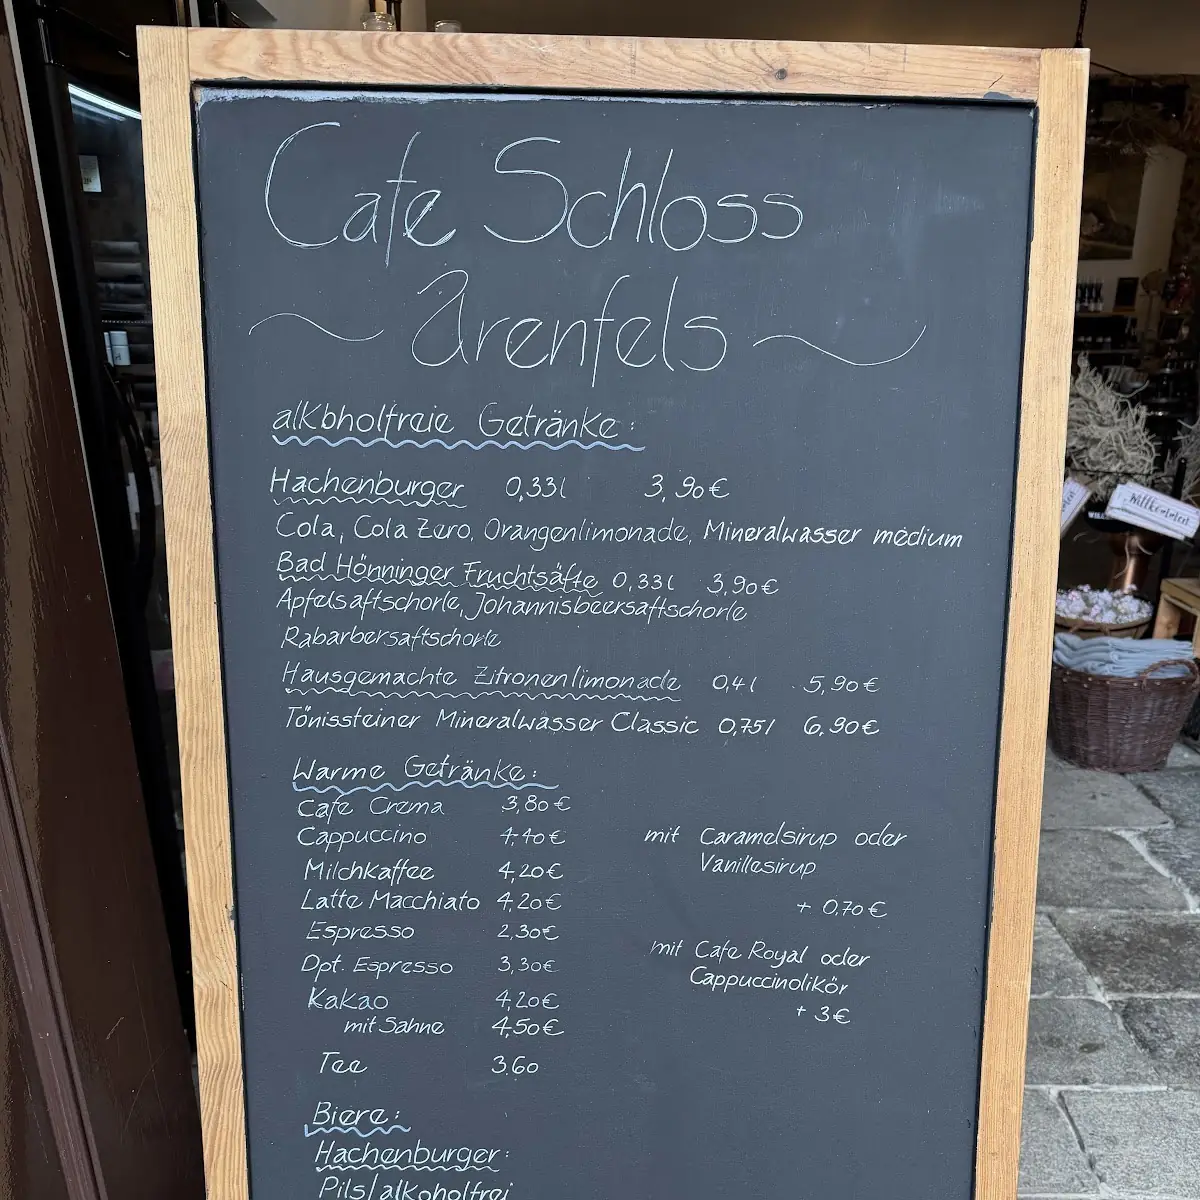 Cafe Schloss
~ Arenfels ~
alkoholfreie Getränke:
Hachenburger 0,33l 3,90€
Cola, Cola Zero, Orangenlimonade, Mineralwasser medium
Bad Hönninger Fruchtsäfte 0,33l 3,90€
Apfelsaftschorle, Johannisbeersaftschorle
Rabarbersaftschorle
Hausgemachte Zitronenlimonade 0,4l 5,90€
Tönissteiner Mineralwasser Classic 0,75l 6,90€
Warme Getränke:
Cafe Crema 3,80€
Cappuccino 4,40€ mit Caramelsirup oder
Vanillesirup
Milchkaffee 4,20€
Latte Macchiato 4,20€ + 0,70€
Espresso 2,30€
mit Cafe Royal oder
Dpt. Espresso 3,30€
Cappuccinolikör
Kakao 4,20€
+ 3€
mit Sahne 4,50€
Tee 3.60
Biere:
Hachenburger:
Pils/alkoholfrei
Willkommen